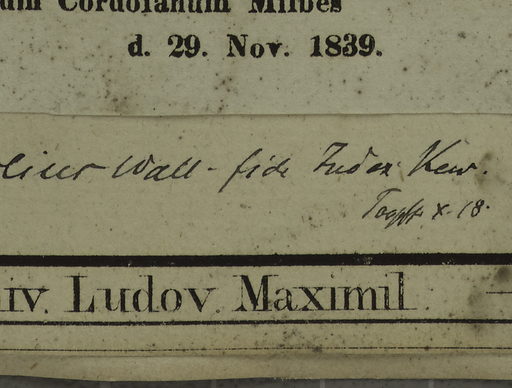 um Cordofanum Milbes
d. 29. Nov. 1839.
Wall. fide Index Kew.
X. 18.
iv. Ludov. Maximil